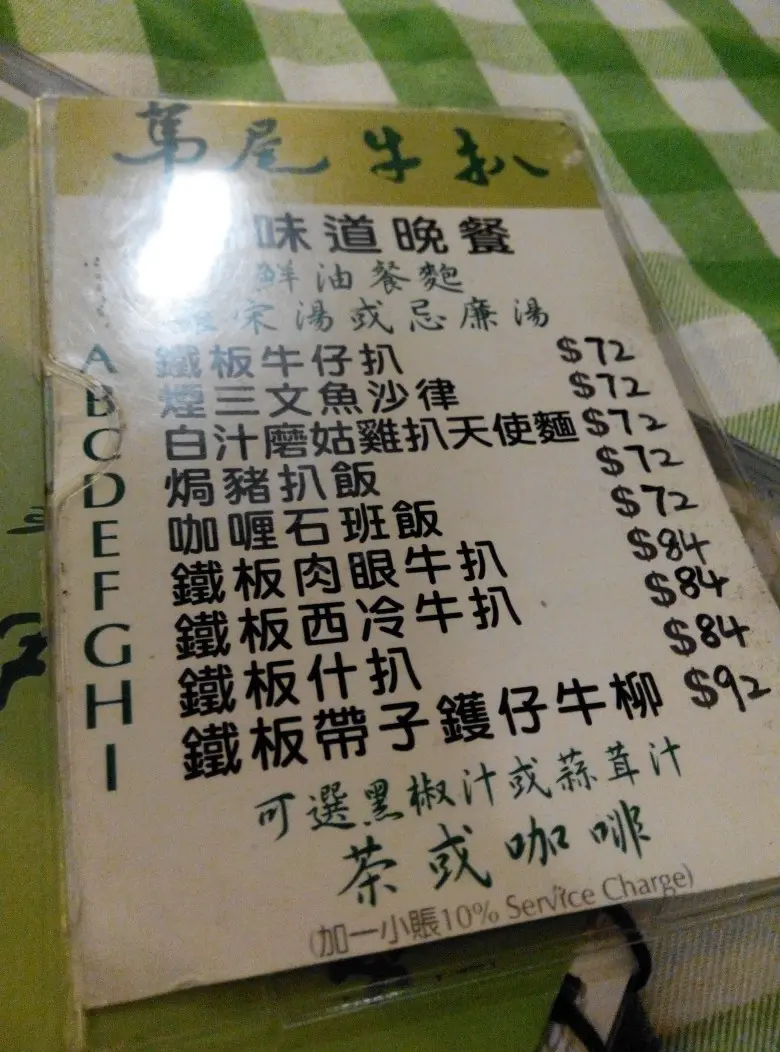 尾牛扒
味道晚餐
鮮油餐麵包
宋湯或忌廉湯
A 鐵板牛仔扒 $72
B 煙三文魚沙律 $72
C 白汁磨菇雞扒天使麵 $72
D 焗豬扒飯 $72
E 咖喱石班飯 $72
F 鐵板肉眼牛扒 $84
G 鐵板西冷牛扒 $84
H 鐵板什扒 $84
I 鐵板帶子鑊仔牛柳 $92
可選黑椒汁或蒜茸汁
茶或咖啡
(加一小賬10% Service Charge)